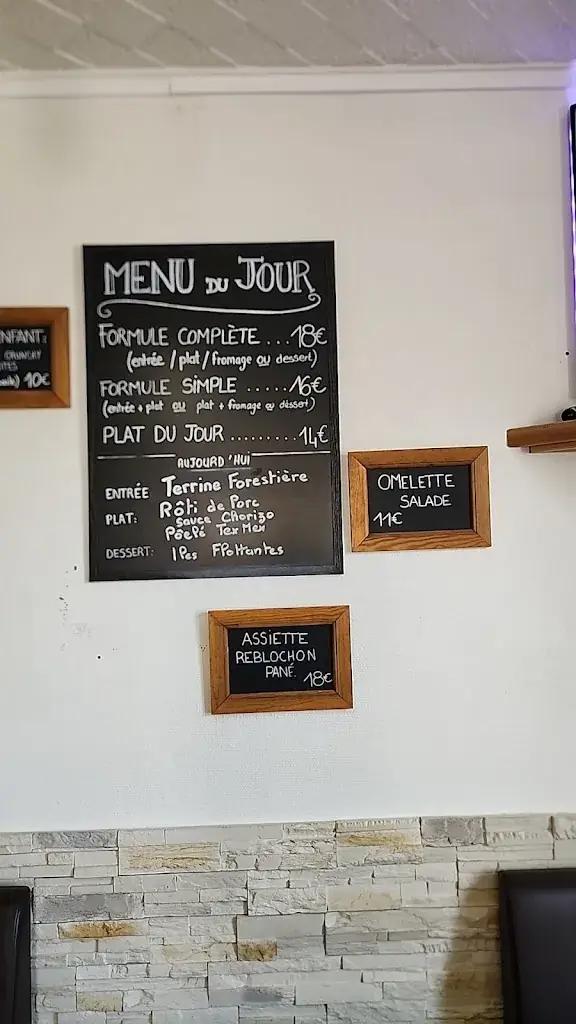 MENU DU JOUR
FORMULE COMPLÈTE ... 18€
(entrée / plat / fromage ou dessert)
FORMULE SIMPLE ..... 16€
(entrée + plat ou plat + fromage ou dessert)
PLAT DU JOUR ......... 14€
AUJOURD'HUI
ENTRÉE Terrine Forestière
PLAT: Rôti de Porc
sauce Chorizo
Poêlé Tex Mex
DESSERT: Iles Flottantes
NFANT:
CRUNCHY
10€
OMELETTE
SALADE
11€
ASSIETTE
REBLOCHON
PANÉ.
18€